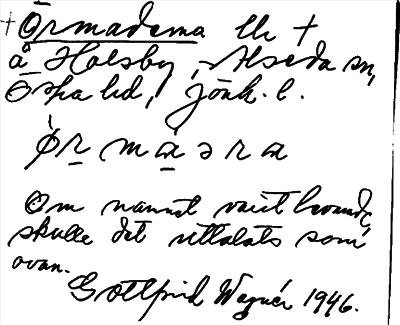 + Ōrmadama lh +
å Holsby, Alseda sn,
Östra hd, Jönk. l.
ø̀r màəra
Om namnet varit levande,
skulle det uttalats som
ovan.
Gottfrid Wagnér 1946.